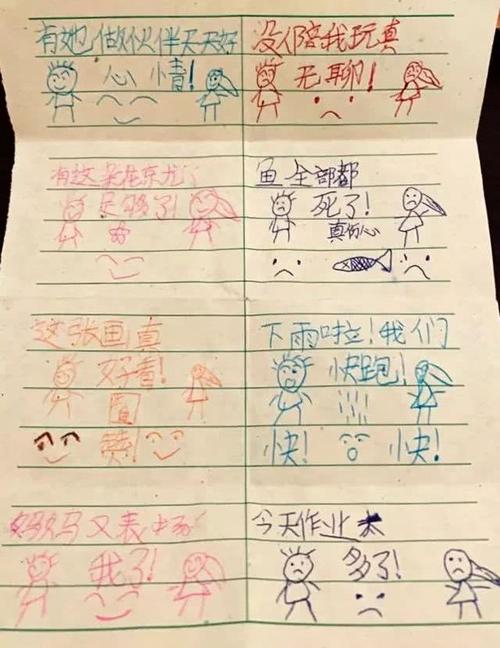 有她做伙伴天天好
心情!
没人陪我玩真
无聊!
有这朵花就
足够了!
鱼全部都
死了!
真伤心
这张画真
好看!
画
赞!
下雨啦!我们
快跑!
快! 快!
妈妈又表扬
我了!
今天作业太
多了!